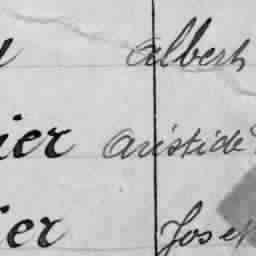 Albert
ier Aristide
ier Josep